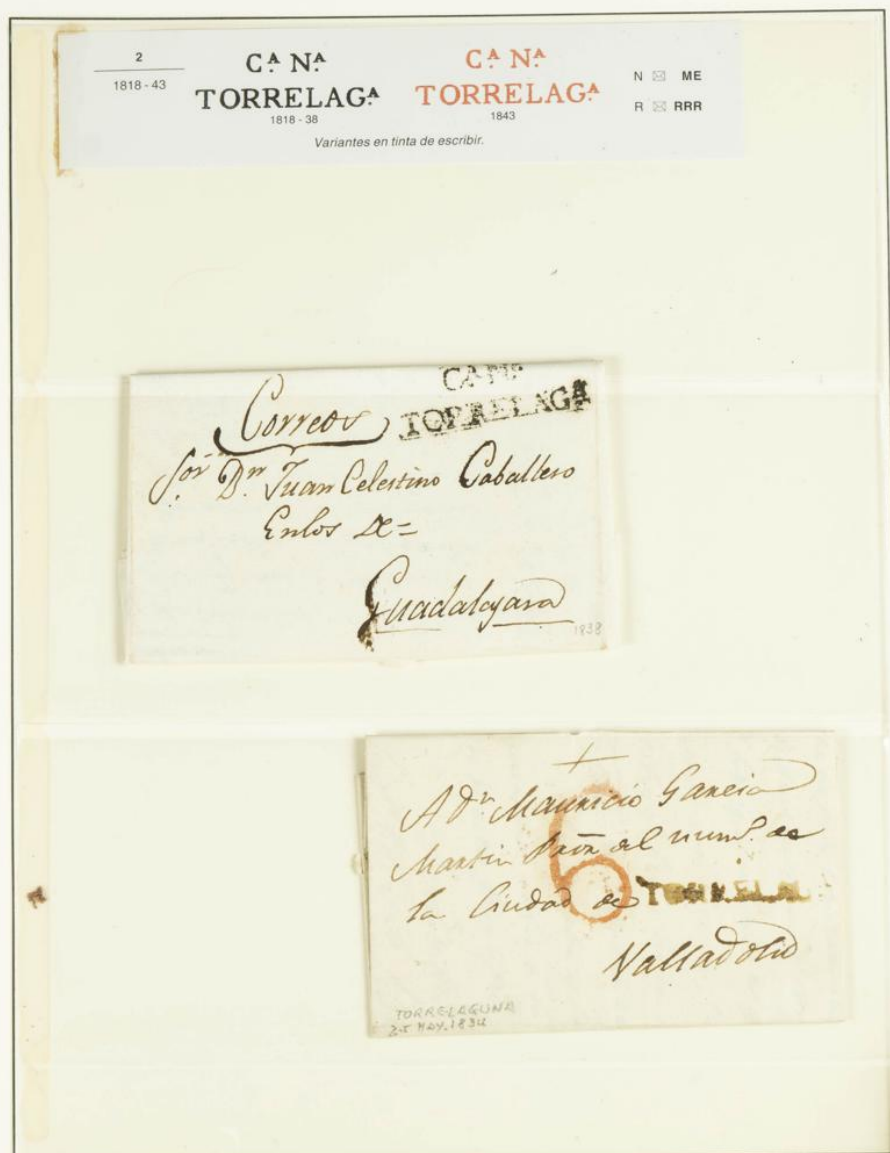 2
1818 - 43
Cᴬ Nᴬ
TORRELAGᴬ
1818 - 38
Cᴬ Nᴬ
TORRELAGᴬ
1843
N ✉ ME
R ✉ RRR
Variantes en tinta de escribir.
Cᴬ Nᴬ
TORRELAGᴬ
Correos
Sor. Dn. Juan Celestino Caballero
En los De=
Guadalajara
1838
A Dn. Mauricio Garcia
Martin del num.º de
6
la Ciudad de
TORRELA
Valladolid
TORRELAGUNA
25 MAY. 1834